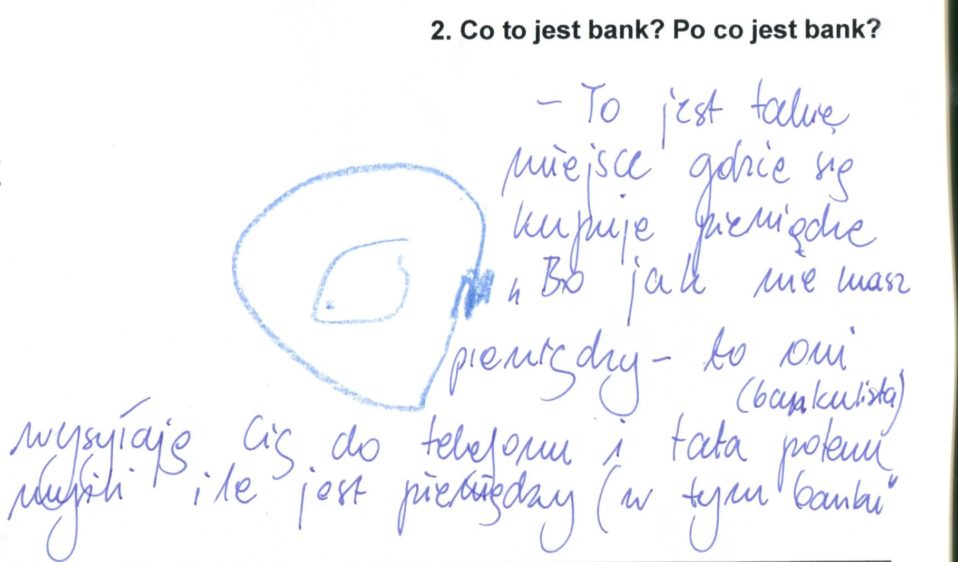 2. Co to jest bank? Po co jest bank?
- To jest takie
miejsce gdzie się
kupuje pieniądze
„ Bo jak nie masz
pieniędzy - to oni
(bankulista)
wysyłają Cię do telefonu i tata potem
myśli ile jest pieniędzy (w tym banku"